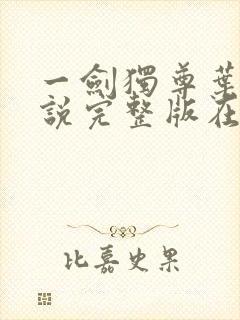 一劍獨尊葉
說完整版在
比嘉史果